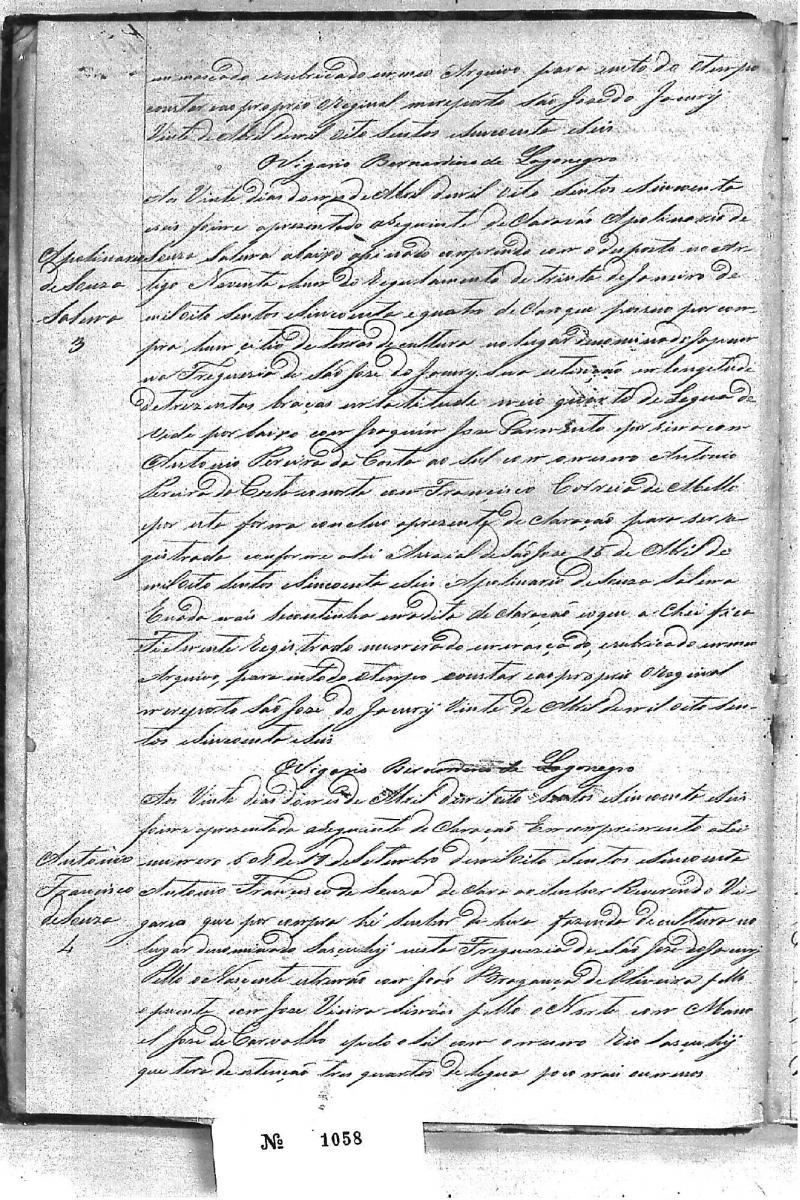 numerado erubricado em meo Arquivo para em todo otempo
constar eao proprio Original mereporto São José do Jacury
Vinte de Abril demil oito sentos esincoenta eseis
OVigario Bernardino de Lagonegro
Aos Vinte dias domes de Abril demil oito sentos esincoenta
eseis foime apresentado aseguinte declaração Apolinario de
Apolinario de Souza Saleiro 3
Souza Saleiro abaixo asignado comprindo com odisposto no Ar-
tigo Noventa hum do Regulamento de trinta deJaneiro de
mil oito sentos esincoenta equatro declara que possue por com-
pra hum citio de terras de cultura no lugar denominado
na Freguezia de São José do Jacury. Sua extenção em longetude
detrezentos braças em latitude meio quarto de Legua de
vide por baixo com Joaquim José Sarmento epor sima com
Antonio Pereira da Costa ao Sul com omesmo Antonio
Pereira da Costa eonorte com Francisco Correia de Mello
epor esta forma concluo apresente declaração para ser re-
gistrada conforme alei Arraial deSão José 18 de Abril de
mil oito sentos esincoenta eseis Apolinario deSouza Saleiro
Enada mais secontinha emadita declaração eoque a Chei fica
Fielmente Registrado numerado emaçado, erubricado em meo
Arquivo, para emtodo otempo constar eao proprio Original
mereporto São José do Jacury Vinte de Abril demil oito sen-
tos esincoenta eseis
OVigario Bernardino de Lagonegro
Aos Vinte dias domes de Abril demil oito sentos esincoenta eseis
foime apresentado aseguinte declaração Em comprimento aLei
numero 601 de 18 deSetembro demil oito sentos esincoenta
Antonio Francisco de Souza 4
Antonio Francisco de Souza declara ao Senhor Reverendo Vi-
gario que por compra hé senhor de huma fazenda decultura no
lugar denominado nesta Freguezia de São José do Jacury
Pello o Nascente extremão com João Bragança de Oliveira pello
opuente com José Vieira pello o Norte com Mano
el José de Carvalho epelo oSul com omesmo Rio
que tera de extenção tres quartos de legua poco mais oumenos
Nº 1058